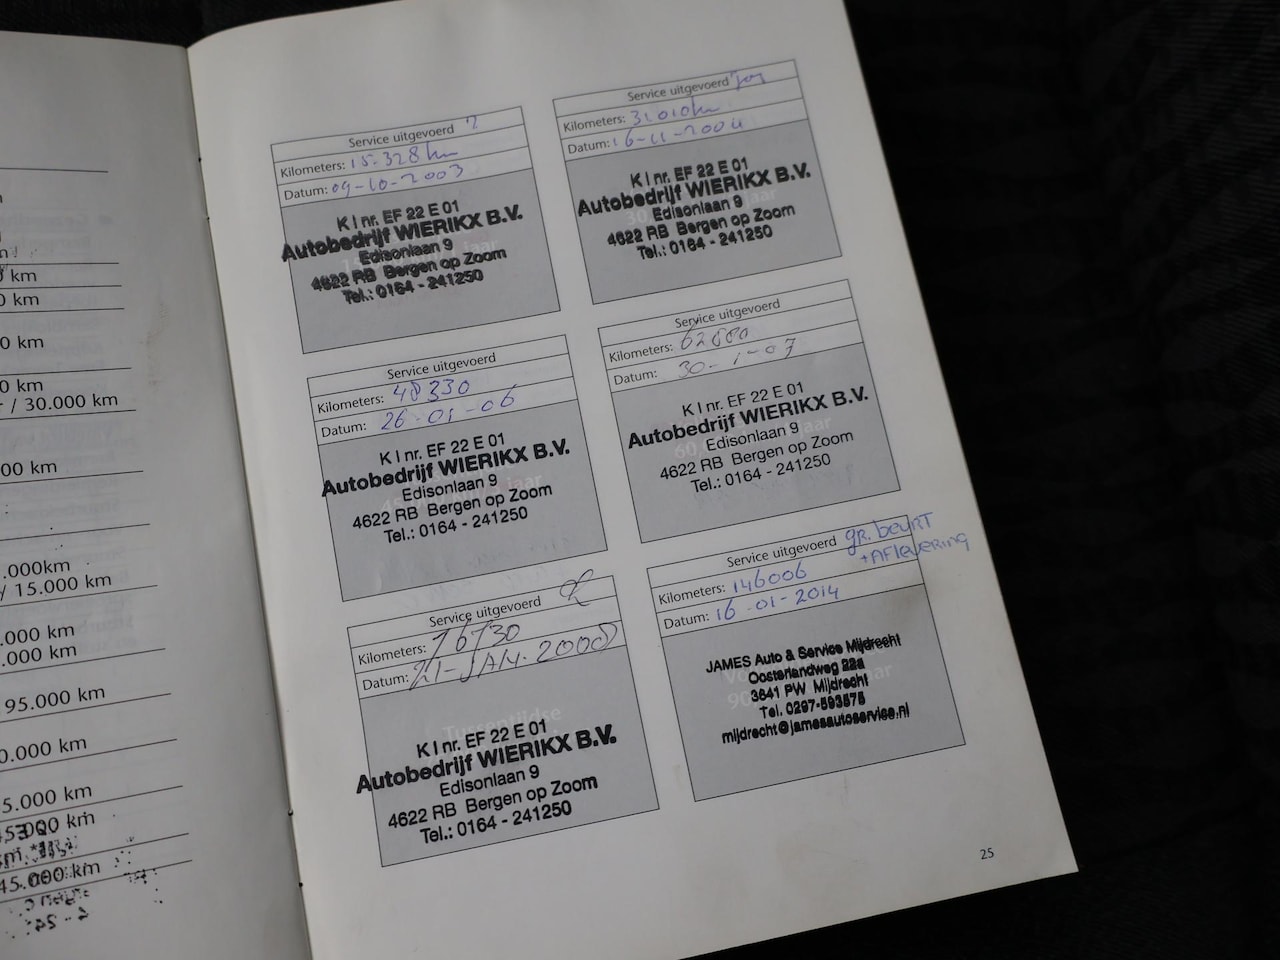 km
0 km
0 km
0 km
0 km
/ 30.000 km
00 km
.000km
/ 15.000 km
.000 km
.000 km
95.000 km
0.000 km
5.000 km
45.000 km
45.000 km
Service uitgevoerd
Kilometers: 15.328 km
Datum: 09-10-2003
K I nr. EF 22 E 01
Autobedrijf WIERIKX B.V.
Edisonlaan 9
4622 RB Bergen op Zoom
Tel.: 0164 - 241250
Service uitgevoerd
Kilometers: 31010 km
Datum: 16-11-2004
K I nr. EF 22 E 01
Autobedrijf WIERIKX B.V.
Edisonlaan 9
4622 RB Bergen op Zoom
Tel.: 0164 - 241250
Service uitgevoerd
Kilometers: 48330
Datum: 26-01-06
K I nr. EF 22 E 01
Autobedrijf WIERIKX B.V.
Edisonlaan 9
4622 RB Bergen op Zoom
Tel.: 0164 - 241250
Service uitgevoerd
Kilometers:
Datum: 30-1-07
K I nr. EF 22 E 01
Autobedrijf WIERIKX B.V.
Edisonlaan 9
4622 RB Bergen op Zoom
Tel.: 0164 - 241250
Service uitgevoerd
Kilometers:
Datum: 21-JAN-2008
K I nr. EF 22 E 01
Autobedrijf WIERIKX B.V.
Edisonlaan 9
4622 RB Bergen op Zoom
Tel.: 0164 - 241250
Service uitgevoerd gr. beurt
+ Aflevering
Kilometers: 146006
Datum: 16-01-2014
JAMES Auto & Service Mijdrecht
Oosterlandweg 22a
3641 PW Mijdrecht
Tel. 0297-593575
mijdrecht@jamesautoservice.nl
25